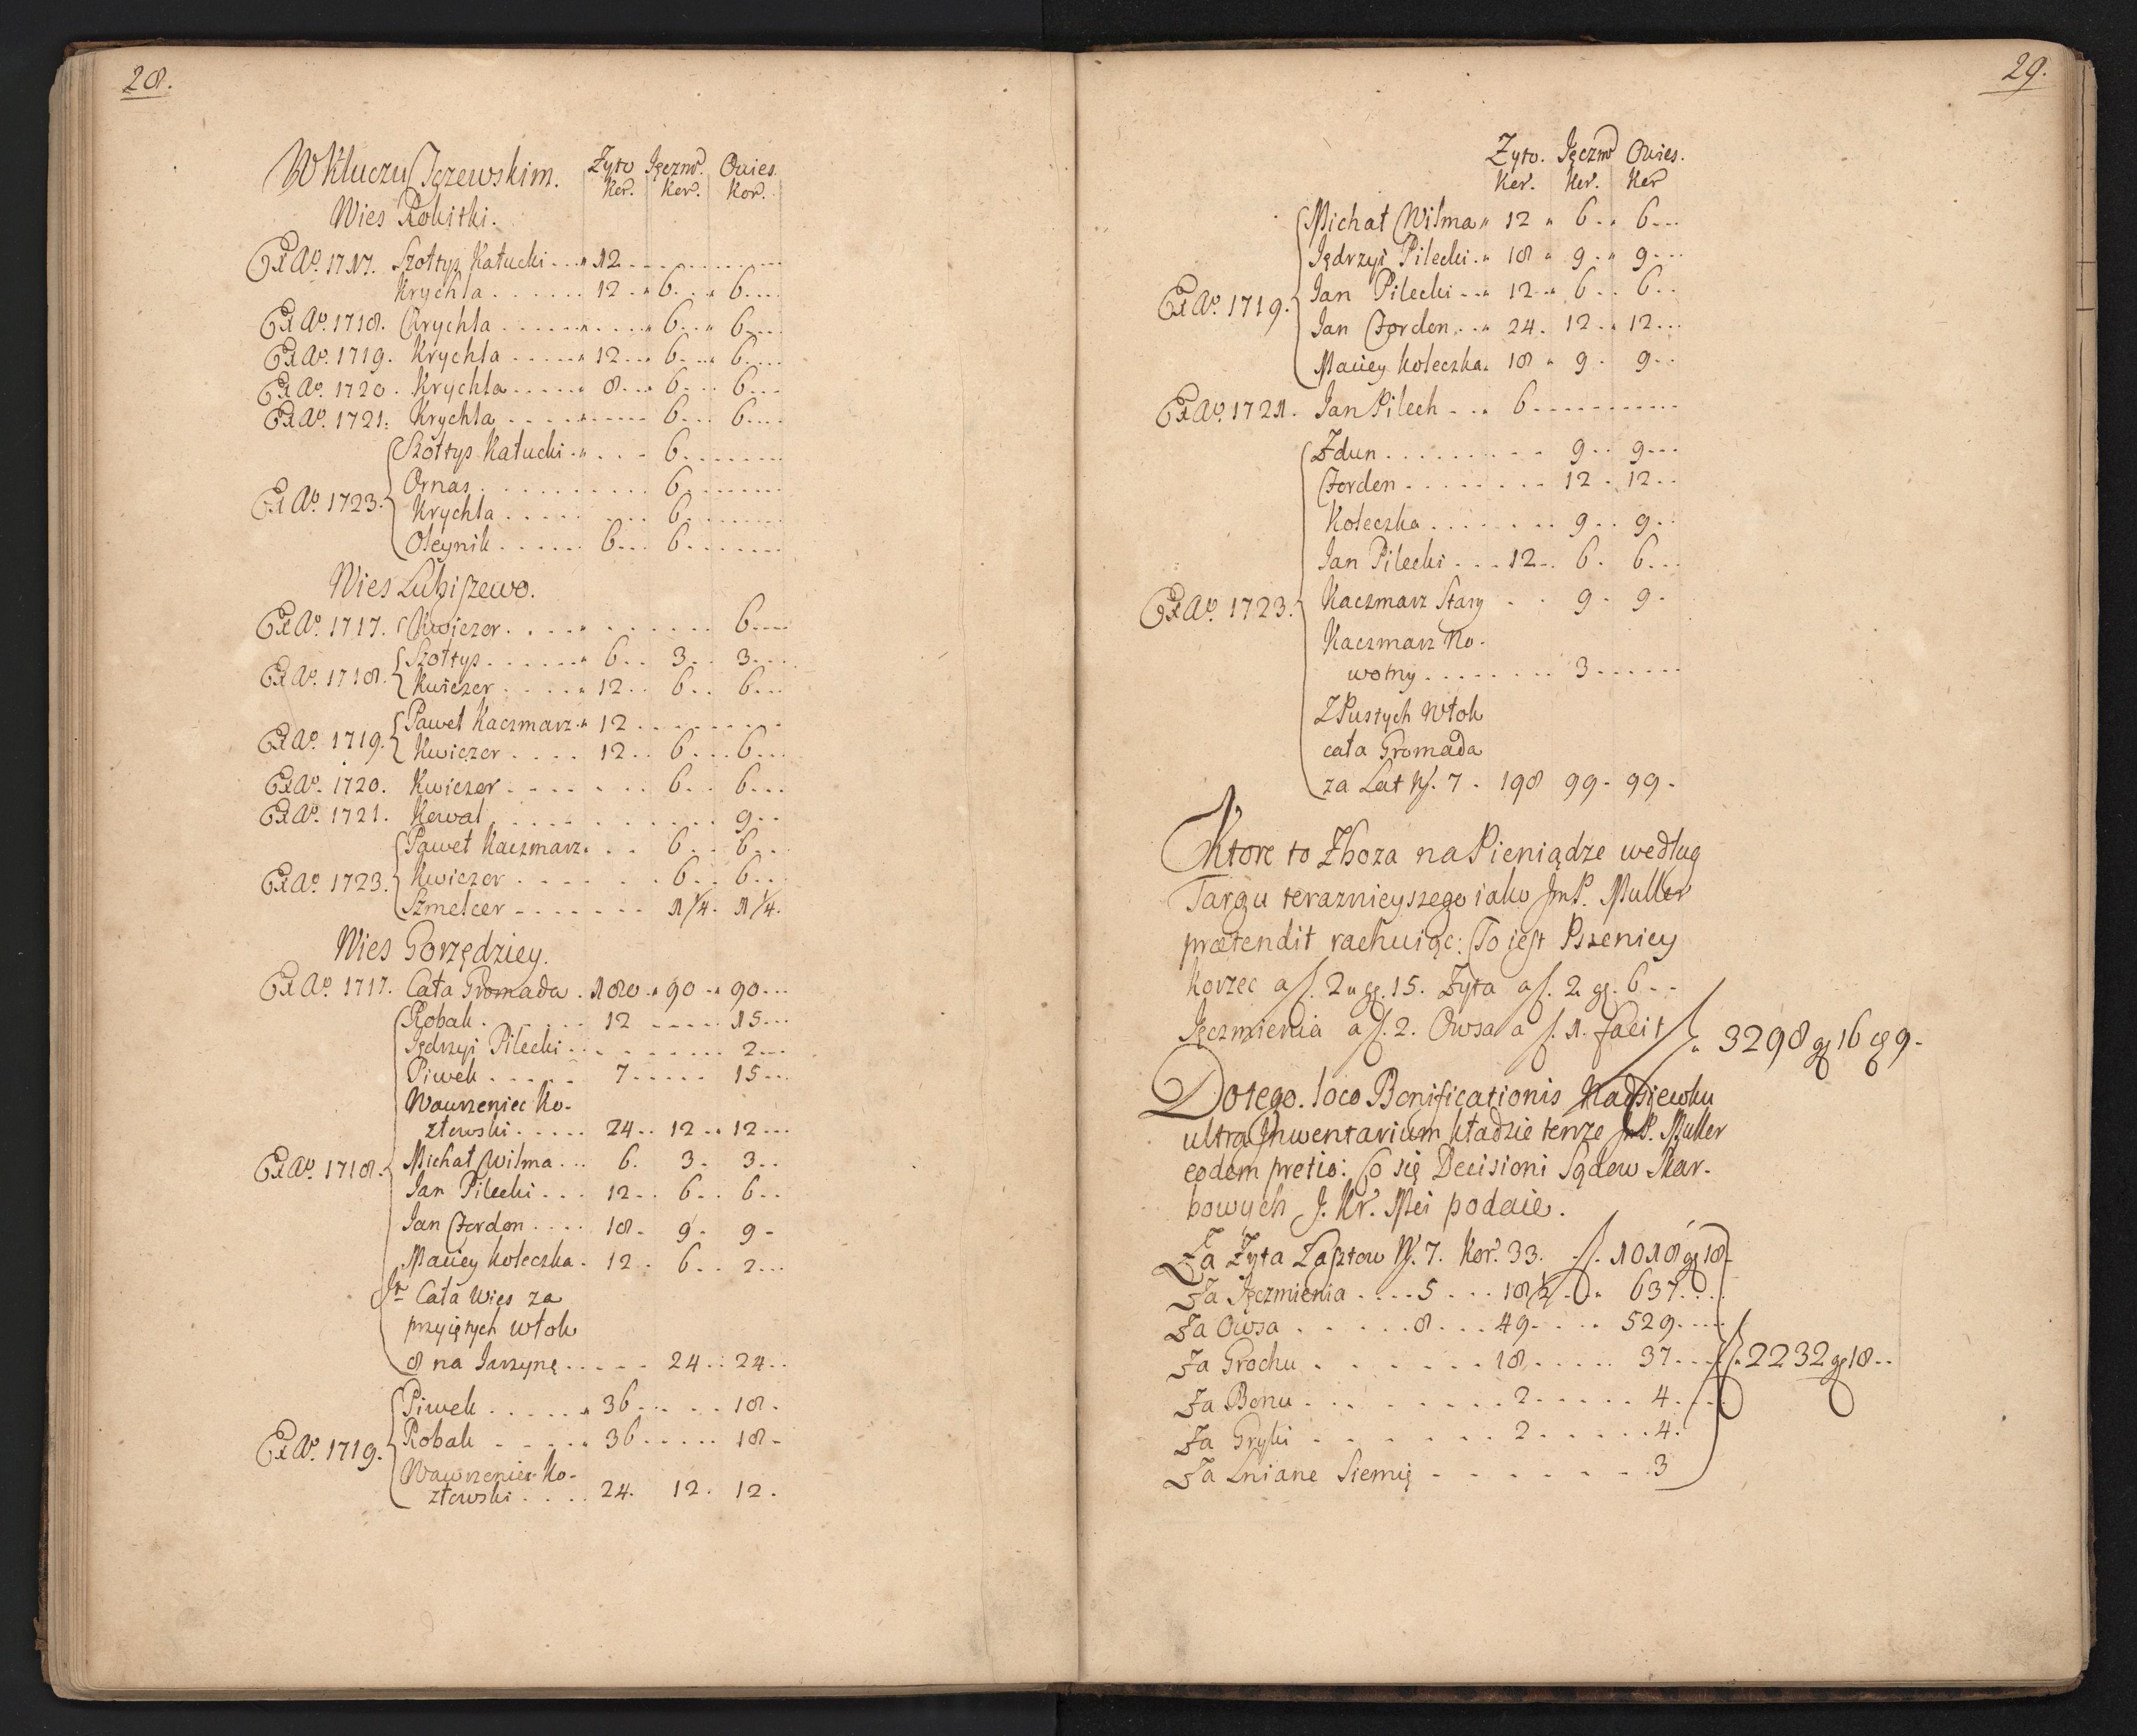 28.
W Kluczu Jezewskim. Zyto Jęczm. Owies.
Kor. Kor. Kor.
Wies Rokitki.
Ex Ao. 1717. Szołtys Kałucki 12
Krychla 12 6 6
Ex Ao. 1718. Krychla 6 6
Ex Ao. 1719. Krychla 12 6 6
Ex Ao. 1720. Krychla 8 6 6
Ex Ao. 1721. Krychla 6 6
Szołtys Kałucki 6
Ornas 6
Ex Ao. 1723. Krychla 6
Oleynik 6 6
Wies Lubiszewo.
Ex Ao. 1717. Kwiczor 6
Szołtys 6 3 3
Ex Ao. 1718. Kwiczer 12 6 6
Paweł Kaczmarz 12
Ex Ao. 1719. Kwiczer 12 6 6
Ex Ao. 1720. Kwiczer 6 6
Ex Ao. 1721. Kowal 9
Paweł Kaczmarz 6 6
Ex Ao. 1723. Kwiczor 6 6
Szmelcer 1 1/4. 1 1/4.
Wies Gorzędziey.
Ex Ao. 1717. Cała Gromada 180 90 90
Robak 12 15
Jędrzyi Pilecki 2
Piwek 7 15
Wawrzeniec Ko-
złowski 24 12 12
Ex Ao. 1718. Michał Wilma 6 3 3
Jan Pilecki 12 6 6
Jan Jordon 18 9 9
Maciey Koleczka 12 6 2
Cała Wies za
przyiętych włok
8 na Jarzynę 24 24
Piwek 36 18
Ex Ao. 1719. Robak 36 18
Wawrzeniec Ko-
złowski 24 12 12
29.
Zyto. Jęczm Owies.
Kor. Kor. Kor
Michał Wilma 12 6 6
Jędrzyi Pilecki 18 9 9
Ex Ao. 1719. Jan Pilecki 12 6 6
Jan Jorden 24 12 12
Maciey Koleczka 18 9 9
Ex Ao. 1721. Jan Pilech 6
Zdun 9 9
Jorden 12 12
Koleczka 9 9
Jan Pilecki 12 6 6
Ex Ao. 1723. Kaczmarz Stary 9 9
Kaczmarz No-
wotny 3
Z Pustych włok
cała Gromada
za Lat N. 7 198 99 99
Ktore to Zboza na Pieniądze według
Targu teraznieyszego iako Jm P. Muller
prætendit rachuiąc: To jest Pszenicy
Korzec a f. 2 gr. 15. Zyta a f. 2 gr. 6
Jęczmienia a f. 2. Owsa a f. 1. facit f. 3298 gr 16 9
Do tego. loco Bonificationis Nadsiewku
ultra Inwentarium kładzie tenze Jm P. Muller
eodem pretio: Co się Decisioni Sądow Skar-
bowych J. Kr. Mci podaie.
Za Zyta Łasztow N. 7. Kor. 33. f. 1018 gr 18
Za Jęczmienia 5 18 1/2 637
Za Owsa 8 49 529
Za Grochu 18 37 f. 2232 gr 18
Za Bonu 2 4
Za Gryki 2 4
Za Lniane Siemię 3